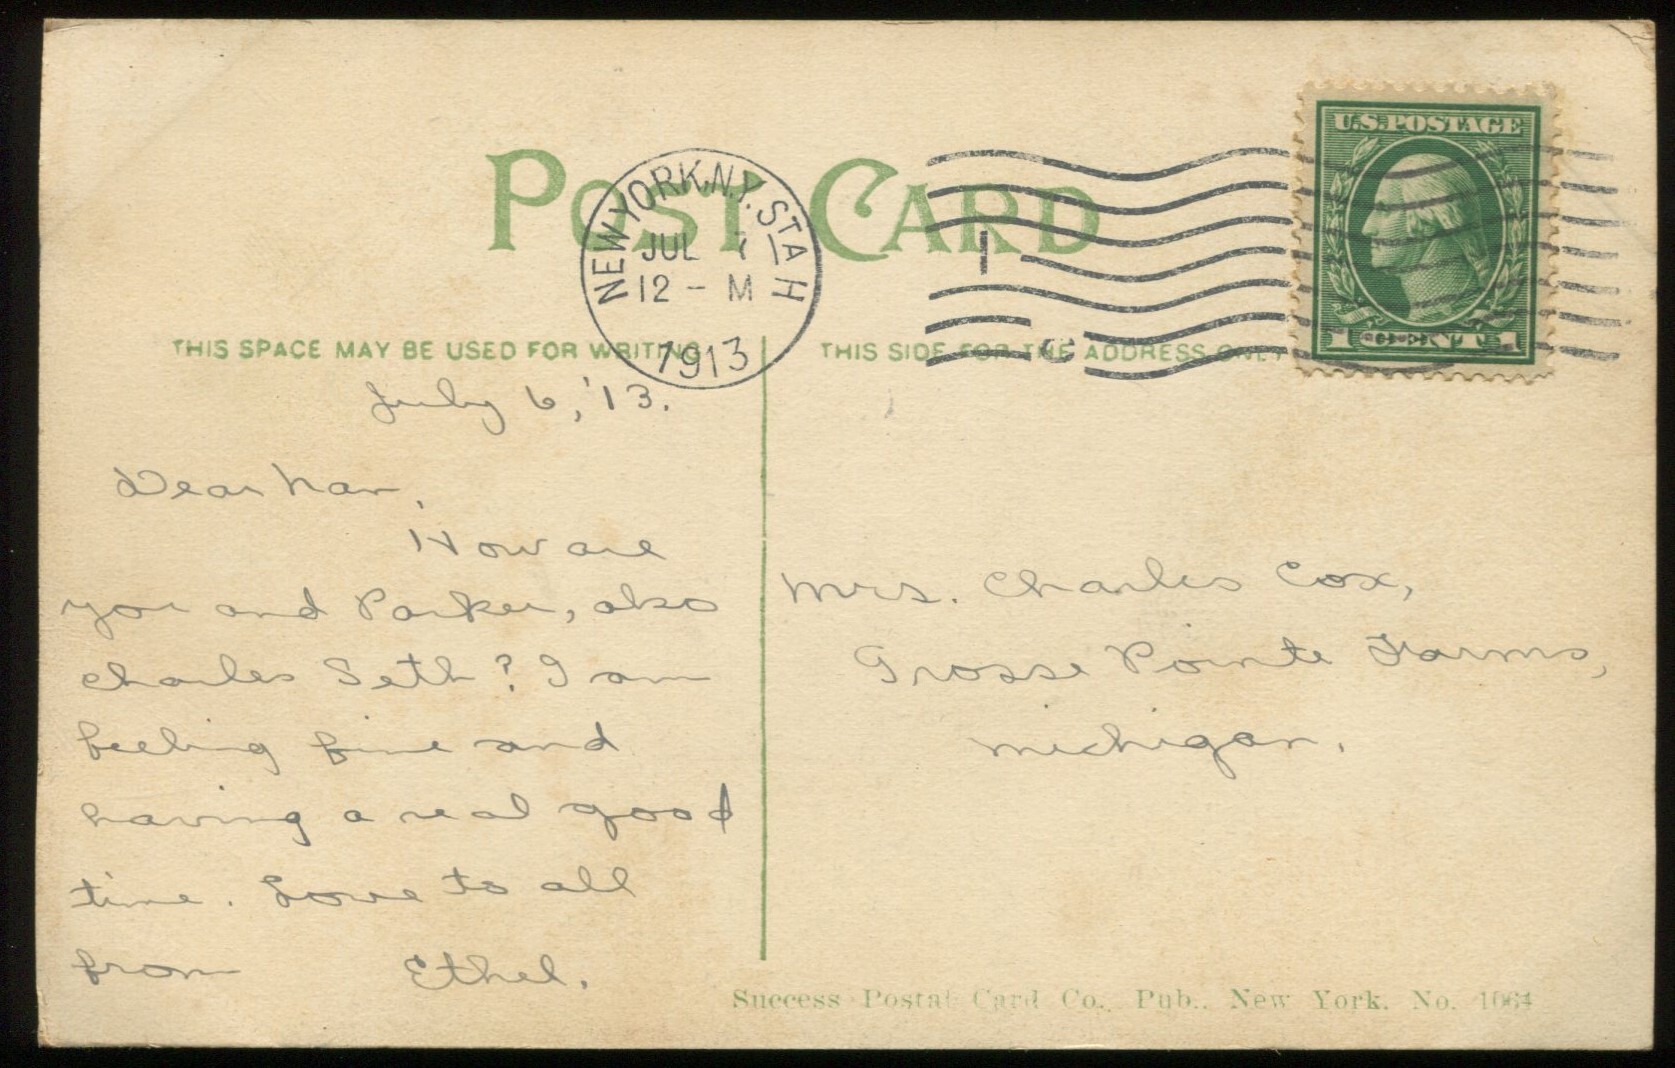 POST CARD
NEW YORK, N.Y. STA H
JUL 7
12 - M
1913
U.S. POSTAGE
1 CENT 1
THIS SPACE MAY BE USED FOR WRITING
THIS SIDE FOR THE ADDRESS ONLY
July 6, '13.
Dear Nan,
How are
you and Parker, also
Charles Seth? I am
feeling fine and
having a real good
time. Love to all
from Ethel.
Mrs. Charles Cox,
Grosse Pointe Farms,
Michigan.
Success Postal Card Co., Pub., New York. No. 1064